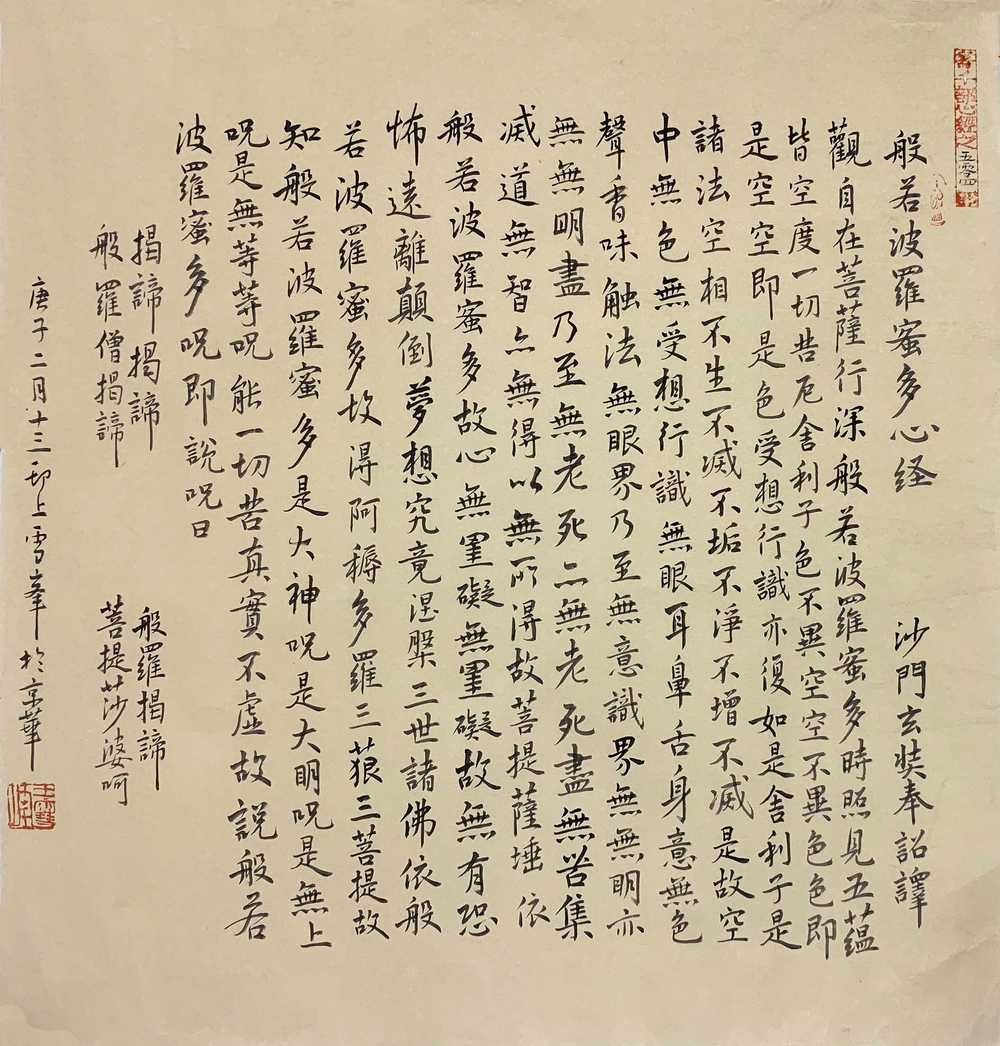 心經之五零四
般若波羅蜜多心経 沙門玄奘奉詔譯
觀自在菩薩行深般若波羅蜜多時照見五蘊
皆空度一切苦厄舍利子色不異空空不異色色即
是空空即是色受想行識亦復如是舍利子是
諸法空相不生不滅不垢不淨不增不減是故空
中無色無受想行識無眼耳鼻舌身意無色
聲香味触法無眼界乃至無意識界無無明亦
無無明盡乃至無老死亦無老死盡無苦集
滅道無智亦無得以無所得故菩提薩埵依
般若波羅蜜多故心無罣礙無罣礙故無有恐
怖遠離顛倒夢想究竟涅槃三世諸佛依般
若波羅蜜多故得阿耨多羅三藐三菩提故
知般若波羅蜜多是大神呪是大明呪是無上
呪是無等等呪能一切苦真實不虛故說般若
波羅蜜多呪即說呪曰
揭諦揭諦 般羅揭諦
般羅僧揭諦 菩提莎婆呵
庚子二月十三邳上雪峯於京華